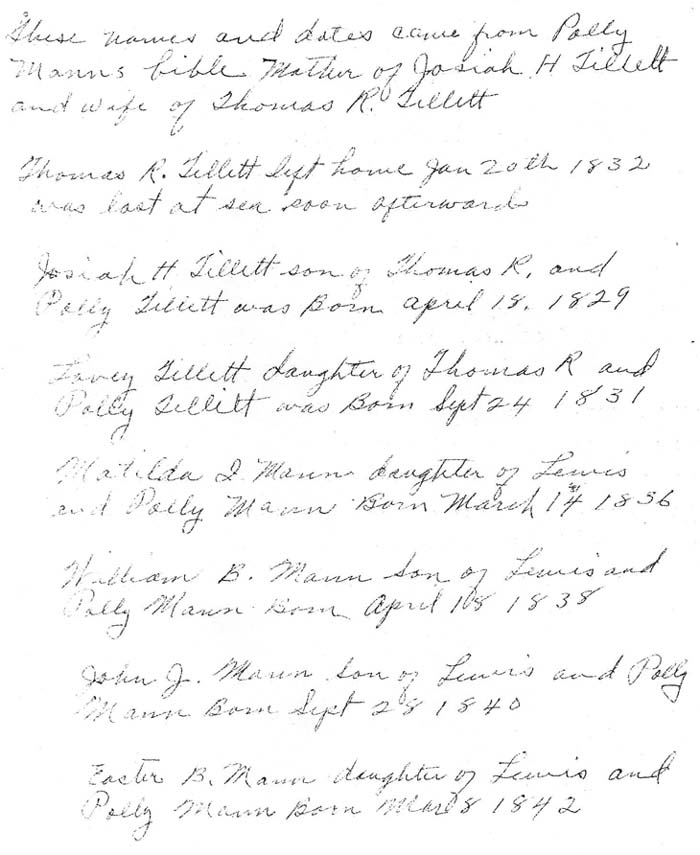 These names and dates came from Polly
Manns bible Mother of Josiah H Tillett
and wife of Thomas R. Tillett
Thomas R. Tillett left home Jan 20th 1832
was lost at sea soon afterwards
Josiah H Tillett son of Thomas R. and
Polly Tillett was Born april 18. 1829
Lavey Tillett daughter of Thomas R and
Polly Tillitt was Born Sept 24 1831
Matilda I Mann daughter of Lewis
and Polly Mann Born March 14 1836
William B. Mann son of Lewis and
Polly Mann Born April 18 1838
John J. Mann son of Lewis and Polly
Mann Born Sept 28 1840
Easter B. Mann daughter of Lewis and
Polly Mann Born Mar 8 1842